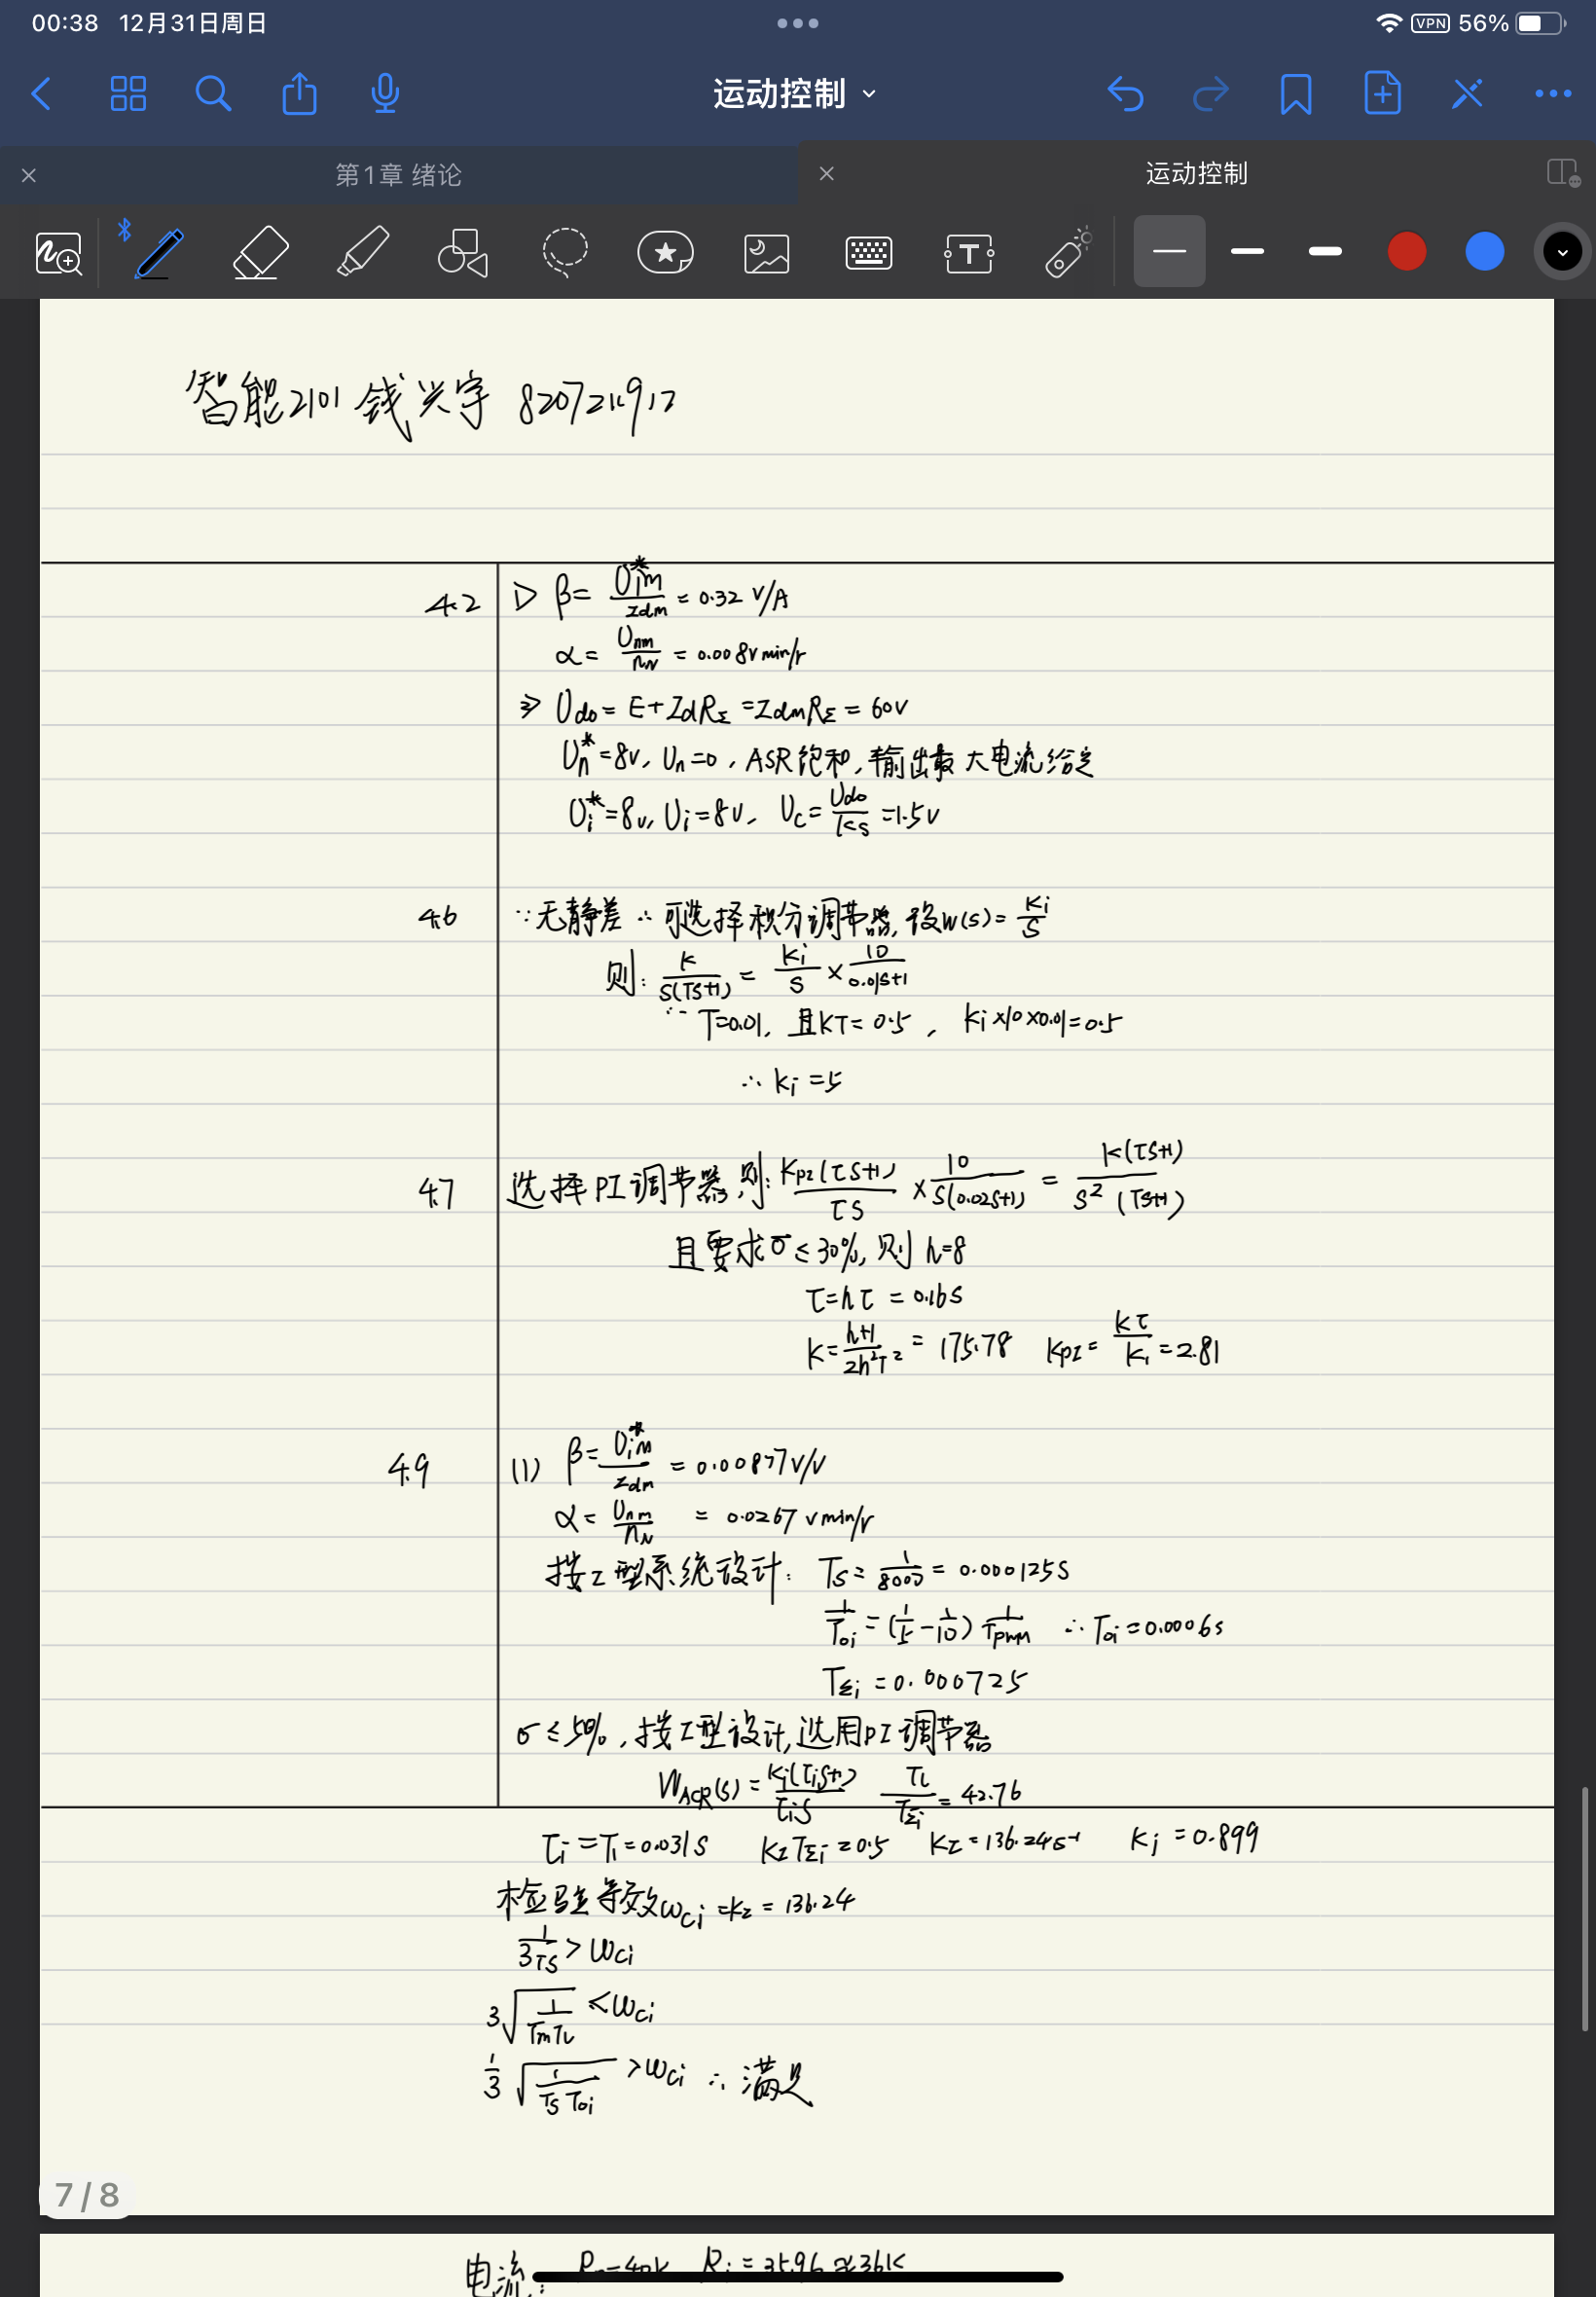 00:38 12月31日周日
VPN 56%
运动控制
第1章 绪论
运动控制
T
智能2101 钱兴宇
4.2 1> β= U*im/Idm = 0.32 V/A
α= Unm/nN = 0.008V min/r
2> Udo = E+IdRΣ = IdmRΣ = 60V
Un*=8V, Un=0, ASR饱和,输出最大电流给定
Ui*=8V, Ui=8V, Uc= Udo/Ks =1.5V
4.6 ∵无静差 ∴可选择积分调节器,设W(s)= Ki/S
则: K/S(TS+1) = Ki/S × 10/0.01S+1
∵ T=0.01, 且KT=0.5, Ki×10×0.01=0.5
∴ Ki =5
4.7 选择PI调节器,则: KpI(τS+1)/τS × 10/S(0.02S+1) = K(τS+1)/S² (TS+1)
且要求σ≤30%,则h=8
τ=hτ =0.16S
K= h+1/2h²T² = 175.78 KpI= Kτ/K1 =2.81
4.9 (1) β= U*im/Idm = 0.00877V/V
α= Unm/nN = 0.0267 Vmin/r
按I型系统设计: TS= 1/8000 = 0.000125S
1/Toi = (1/5 - 1/10) 1/Tpwm ∴Toi=0.0006s
TΣi =0.000725
σ≤5%,按I型设计,选用PI调节器
WACR(S) = Ki(τiS+1)/τiS TL/TΣi = 42.76
τi=Tl=0.031S KITΣi=0.5 KI=136.24s⁻¹ Ki =0.899
检验等效ωci =KI = 136.24
1/3TS > ωci
3√1/TmTL <ωci
1/3 √1/TS Toi >ωci ∴满足
7 / 8
电流: